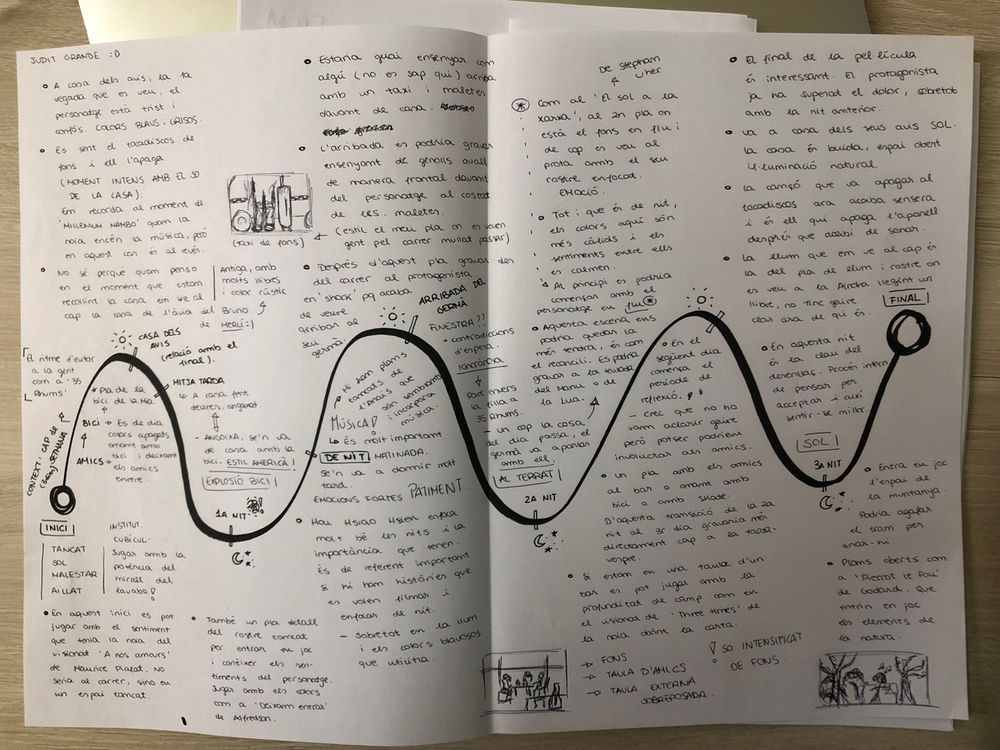 JUDIT GRANDE :D
• A casa dels avis, la 1a
vegada que es veu, el
personatge està trist i
confós. COLORS BLAUS i GRISOS.
• Es sent el tocadiscos de
fons i ell l'apaga
(MOMENT INTENS AMB EL SO
DE LA CASA).
Em recorda al moment de
'MILLENIUM MAMBO' quan la
noia encén la música, però
en aquest cas és al revés.
• No sé perquè quan penso
en el moment que estan
recollint la casa em ve al
cap la casa de l'àvia del Bruno
de MERLÍ :)
Antiga, amb
molts llibres
i color rústic
• Estaria guai ensenyar com
algú (no es sap qui) arriba
amb un taxi i maletes
davant de casa.
• L'arribada es podria gravar
ensenyant de genolls avall
de manera frontal davant
del personatge al costat
de les maletes.
(estil el meu pla on es veuen
gent pel carrer mullat passar)
(taxi de fons)
• Després d'aquest pla gravar des
del carrer al protagonista
en 'shock' pq acaba
de veure
arribar al
seu germà.
ARRIBADA DEL
GERMÀ
FINESTRA??
• contradiccions
d'espera
ignorància
Pare espera
la filla a
35 Rhums.
El ritme d'evitar
a la gent
com a '35
Rhums'.
CONTEXT: CAP DE SETMANA
CASA DELS
AVIS
(relació amb el
final).
• Pla de la
bici de la
MITJA TARDA
↳ A casa fent
deures, angoixat
BICI → Es de dia
colors apagats
anant amb
bici i deixant
els amics
enrere.
AMICS
- ANGOIXA, se'n va
de casa amb la
bici. ESTIL AMERICÀ!
EXPLOSIÓ BICI
1A NIT
INICI
TANCAT
SOL
MALESTAR
AÏLLAT
INSTITUT.
CUBICUL.
Jugar amb la
potència del
mirall del
lavabo!
• En aquest inici es pot
jugar amb el sentiment
que tenia la noia del
visionat 'A nos amours'
de Maurice Pialat. No
seria al carrer, sinó en
un espai tancat.
• També un pla detall
del rostre tancat
per entrar en joc
i conèixer els sen-
timents del personatge.
Jugar amb els colors
com a 'Deixam entrar'
de Alfredson.
• Hi ham plans
tancats de
l'anaïs que
són semblants
i incorpora
música.
MÚSICA!
↳ És molt important.
DE NIT MATINADA.
Se'n va a dormir molt
tard.
EMOCIONS FORTES PATIMENT.
• Hou Hsiao Hsien enfoca
molt bé les nits i la
importància que tenen.
És de referent important
si hi ham històries que
es volen filmar i
enfocar de nit.
- Sobretot en la llum
i els colors blavosos
que utilitza.
De Stephan
Uher
* Com al 'El sol a la
xarxa', al 2n pla on
està el fons en flu i
de cop es veu al
prota amb el seu
rostre enfocat.
EMOCIÓ.
• Tot i que és de nit,
els colors aquí són
més càlids i els
sentiments entre ells
es calmen.
Al principi es podria
començar amb el
personatge en flu *
• Aquesta escena ens
podria quedar la
més tendra, és com
el reconcili. Es podria
gravar a la
del Manu o de
la Lua.
- un cop la casa
del dia passa, el
germà va a parlar
amb ell.
AL TERRAT
2A NIT
• En el
següent dia
comença el
període de
reflexió.
- Crec que no ho
vam aclarir gaire
però potser podríem
involucrar als amics.
• un pla amb els amics
al bar o anant amb
bici o amb skate.
D'aquesta transició de la 2a
nit al 3r dia gravaria més
directament cap a la tarda-
vespre.
• Si estan en una taula d'un
bar es pot jugar amb la
profunditat de camp com en
el visionat de 'Three times' de
la noia obrint la carta.
→ FONS
→ TAULA D'AMICS
→ TAULA EXTERNA
SOBREPOSADA.
! SO INTENSIFICAT
DE FONS.
• El final de la pel·lícula
és interessant. El protagonista
ja ha superat el dolor, sobretot
amb la nit anterior.
• Va a casa dels seus avis SOL.
La casa és buida, espai obert
il·luminació natural.
• La cançó que va apagar al
tocadiscos ara acaba sencera
i és ell qui apaga l'aparell
després que acabi de sonar.
• La llum que em ve al cap és
la del pla de llum i rostre on
es veu a la Aïcha llegint un
llibre, no tinc gaire
clar ara de qui és.
FINAL
• En aquesta nit
és la clau del
desenllaç. Procés intern
de pensar per
acceptar i així
sentir-se millor.
SOL
3A NIT
• Entra en joc
l'espai de
la muntanya.
Podria agafar
el tram per
anar-hi.
• Plans oberts com
a 'Pierrot le Fou'
de Godard. Que
entrin en joc
els elements de
la natura.